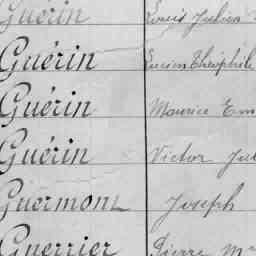 Guérin Louis Julien
Guérin Lucien Théophile
Guérin Maurice Em
Guérin Victor Jul
Guermont Joseph
Guerrier Pierre Ma